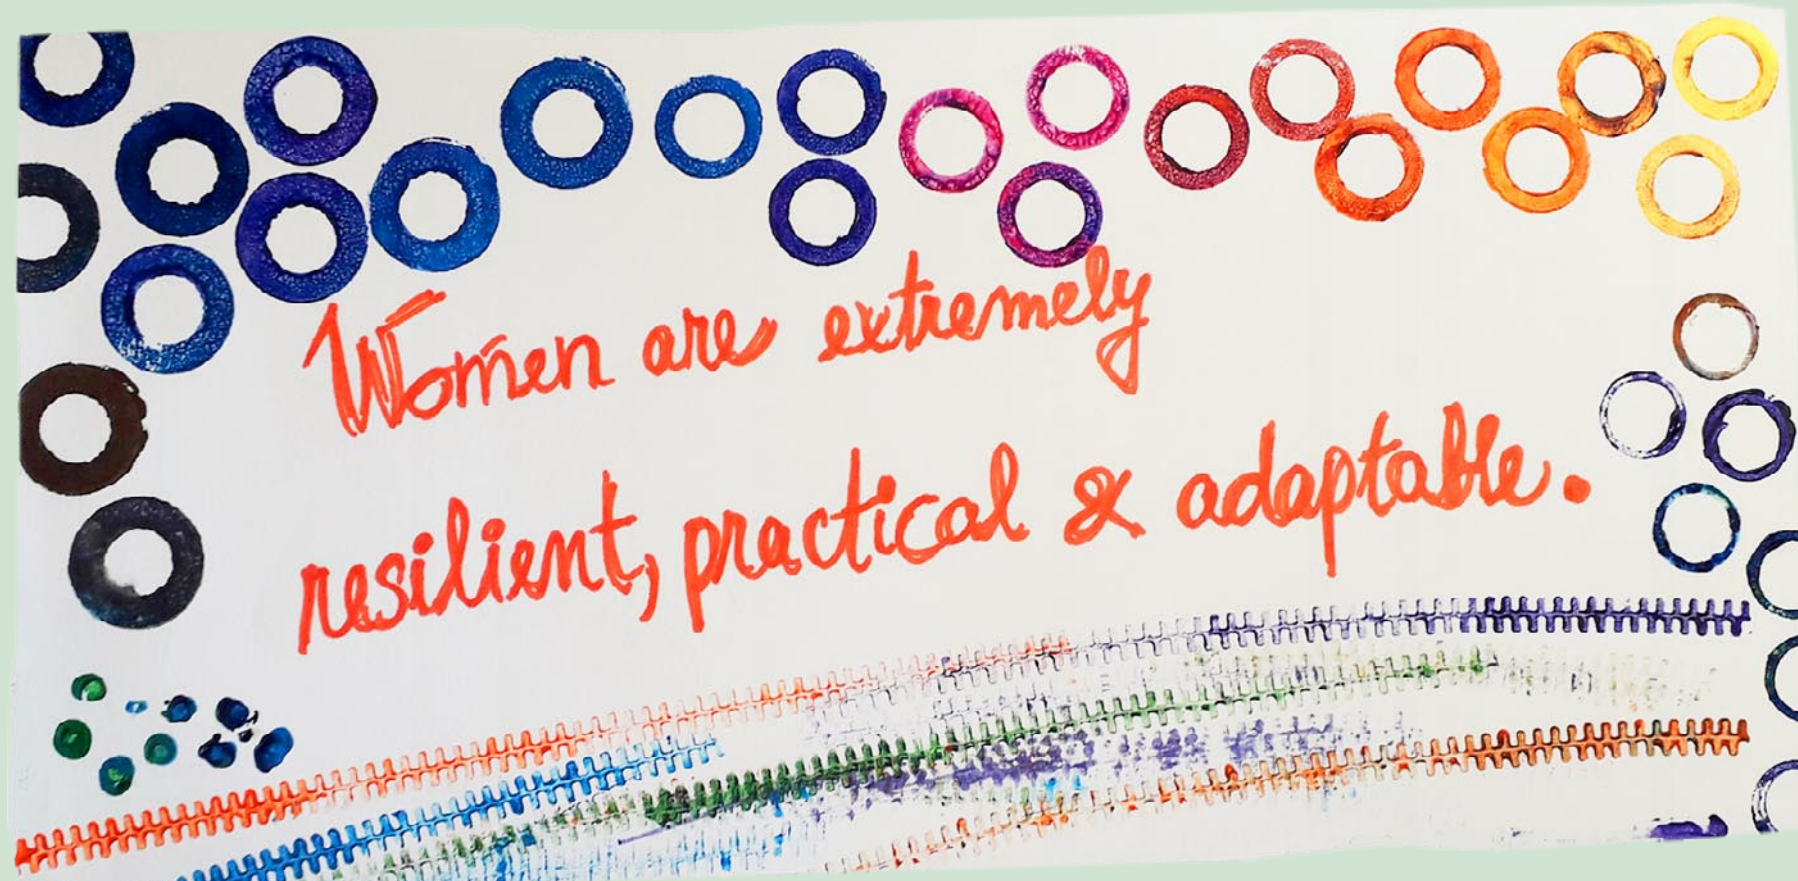 Women are extremely
resilient, practical & adaptable.